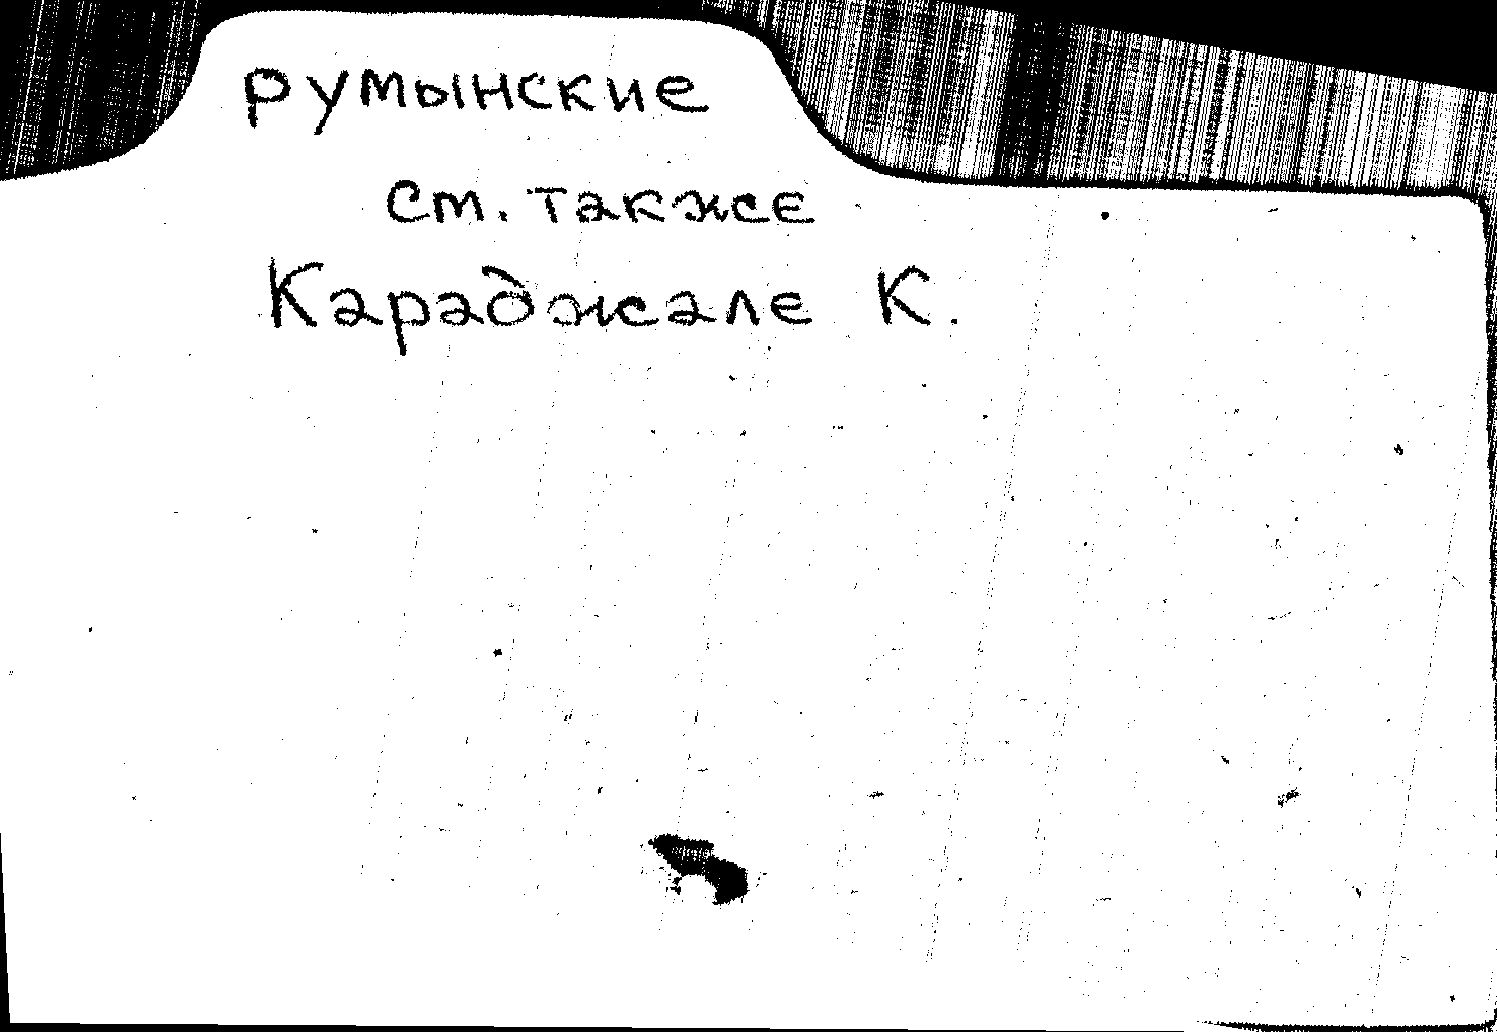 румынские
см. также
Караджале К.